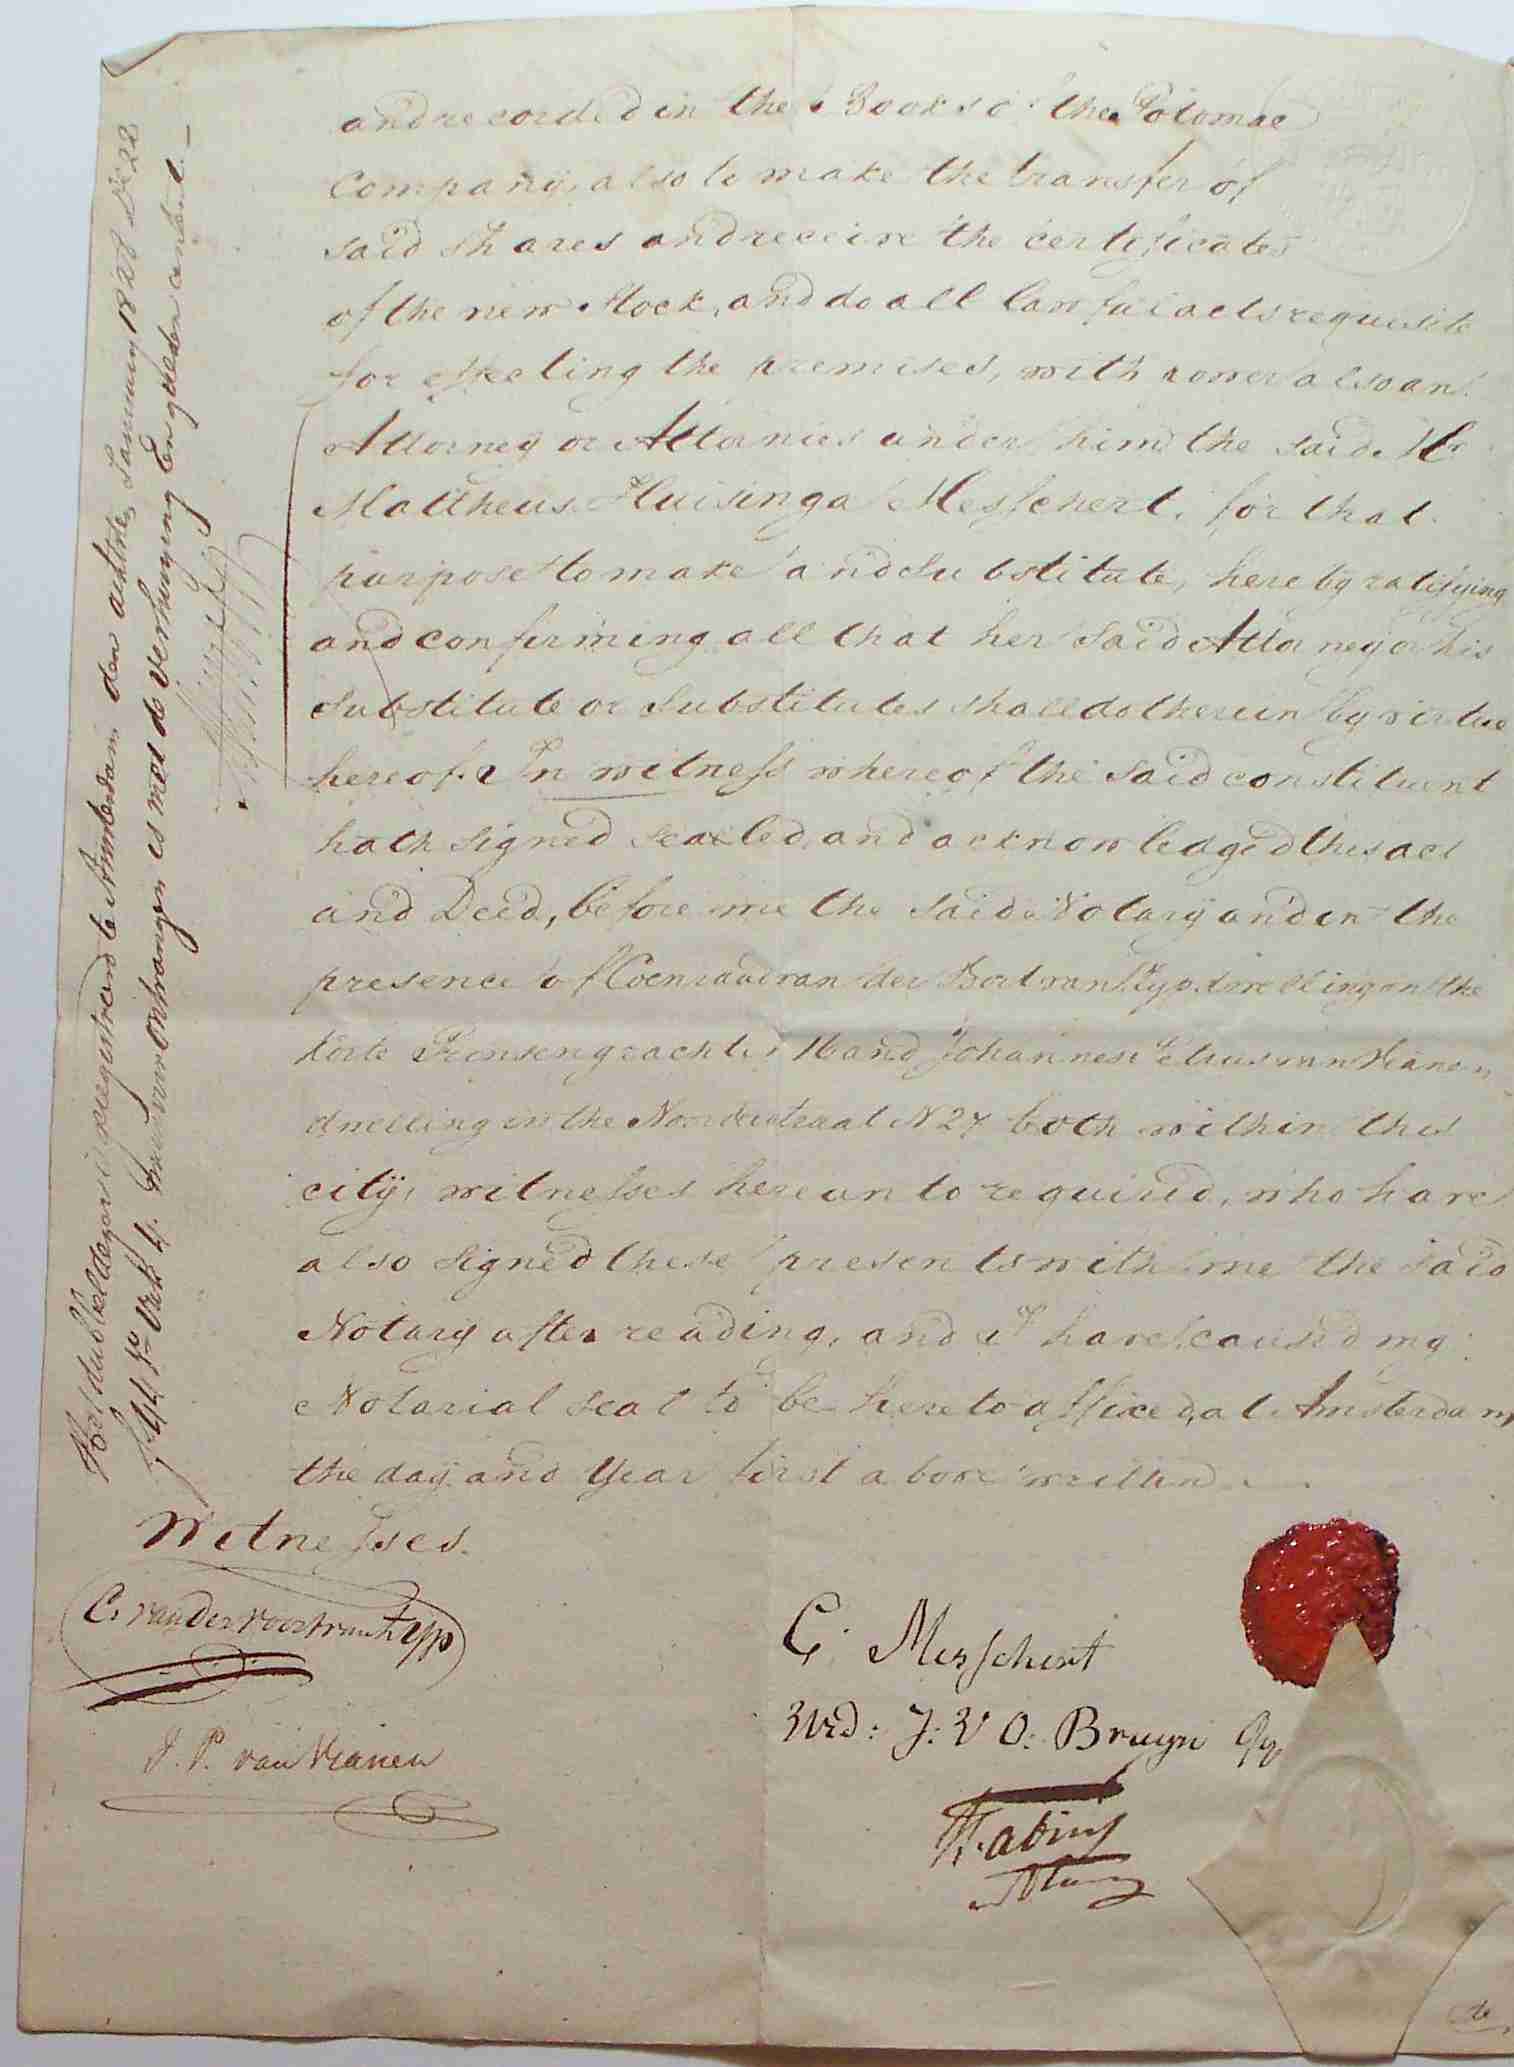 and recorded in the Books of the Potomac
Company, also to make the transfer of
said shares and receive the certificates
of the new Stock, and do all lawful acts requisite
for effecting the premises, with power also an
Attorney or Attornies under him the said Mr
Mattheus Huisinga Messchert, for that
purpose to make and substitute, hereby ratifying
and confirming all that her said Attorney or his
Substitute or Substitutes shall do therein by virtue
hereof. In witness whereof the said constituent
hath signed sealed and acknowledged this act
and Deed, before me the said Notary and in the
presence of Coenraad van der Voort van Zyp dwelling on the
korte Prinsengracht 16 and Johannes Petrus van Vianen
dwelling in the Noorderstraat N 27 both within this
city, witnesses hereunto required, who have
also signed these presents with me the said
Notary after reading, and I have caused my
Notarial seal to be hereto affixed, at Amsterdam
the day and Year first above written
Witnesses.
C. van der Voort van Zyp
J. P. van Vianen
C. Messchert
Wed: J: V O: Bruyn
Fabius
Notary
geregistreerd te Amsterdam den achtste January 1828
ontvangen is met de verhuging Een gulden